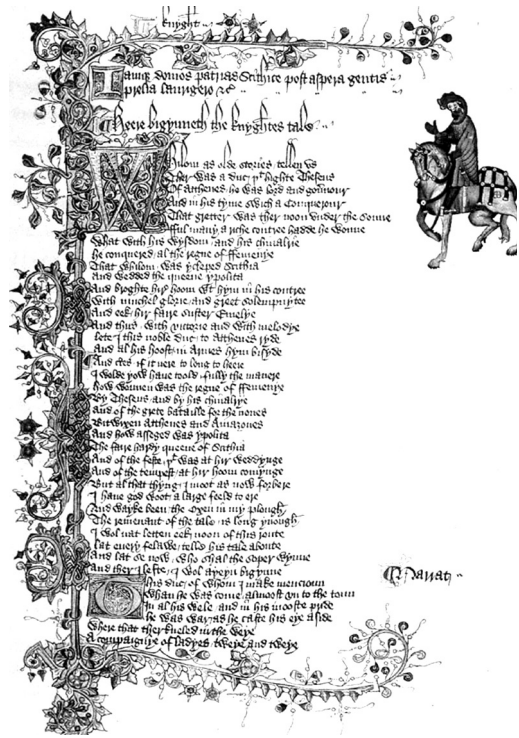 knyght
Iamque domos patrias Scithice post aspera gentis
prelia laurigero &c
Heere bigynneth the knyghtes tale
Whilom as olde stories tellen vs
Ther was a duc þt highte Theseus
Of Atthenes he was lord and gouernour
And in his tyme swich a conquerour
That gretter was ther noon vnder the sonne
fful many a riche contree hadde he wonne
What with his wysdom and his chiualrie
he conquered al the regne of ffemenye
That whilom was ycleped Scithia
And wedded the queene ypolita
And broghte hir hoom wt hym in his contree
With muchel glorie and greet solempnytee
And eek hir faire suster Emelye
And thus with victorie and with melodye
lete I this noble duc to Atthenes ryde
And al his hoost in Armes hym bisyde
And certes if it nere to long to heere
I wolde yow haue toold fully the manere
how wonnen was the regne of ffemenye
By Theseus and by his chiualrye
And of the grete bataille for the nones
Bitwixen Atthenes and Amazones
And how asseged was ypolita
The faire hardy queene of Scithia
And of the feste þt was at hir weddynge
And of the tempest at hir hoom comynge
But al that thyng I moot as now forbere
I haue god woot a large feeld to ere
And wayke been the Oxen in my plough
The remenant of the tale is long ynough
I wol nat letten eek noon of this route
lat euery felawe telle his tale aboute
And lat se now who shal the soper wynne
And ther I lefte I wol ayeyn bigynne
This duc of whom I make mencioun
Whan he was come almoost vn to the toun
In al his wele and in his mooste pride
he was war as he caste his eye aside
Where that ther kneled in the weye
A compaignye of ladyes tweye and tweye
Narrat